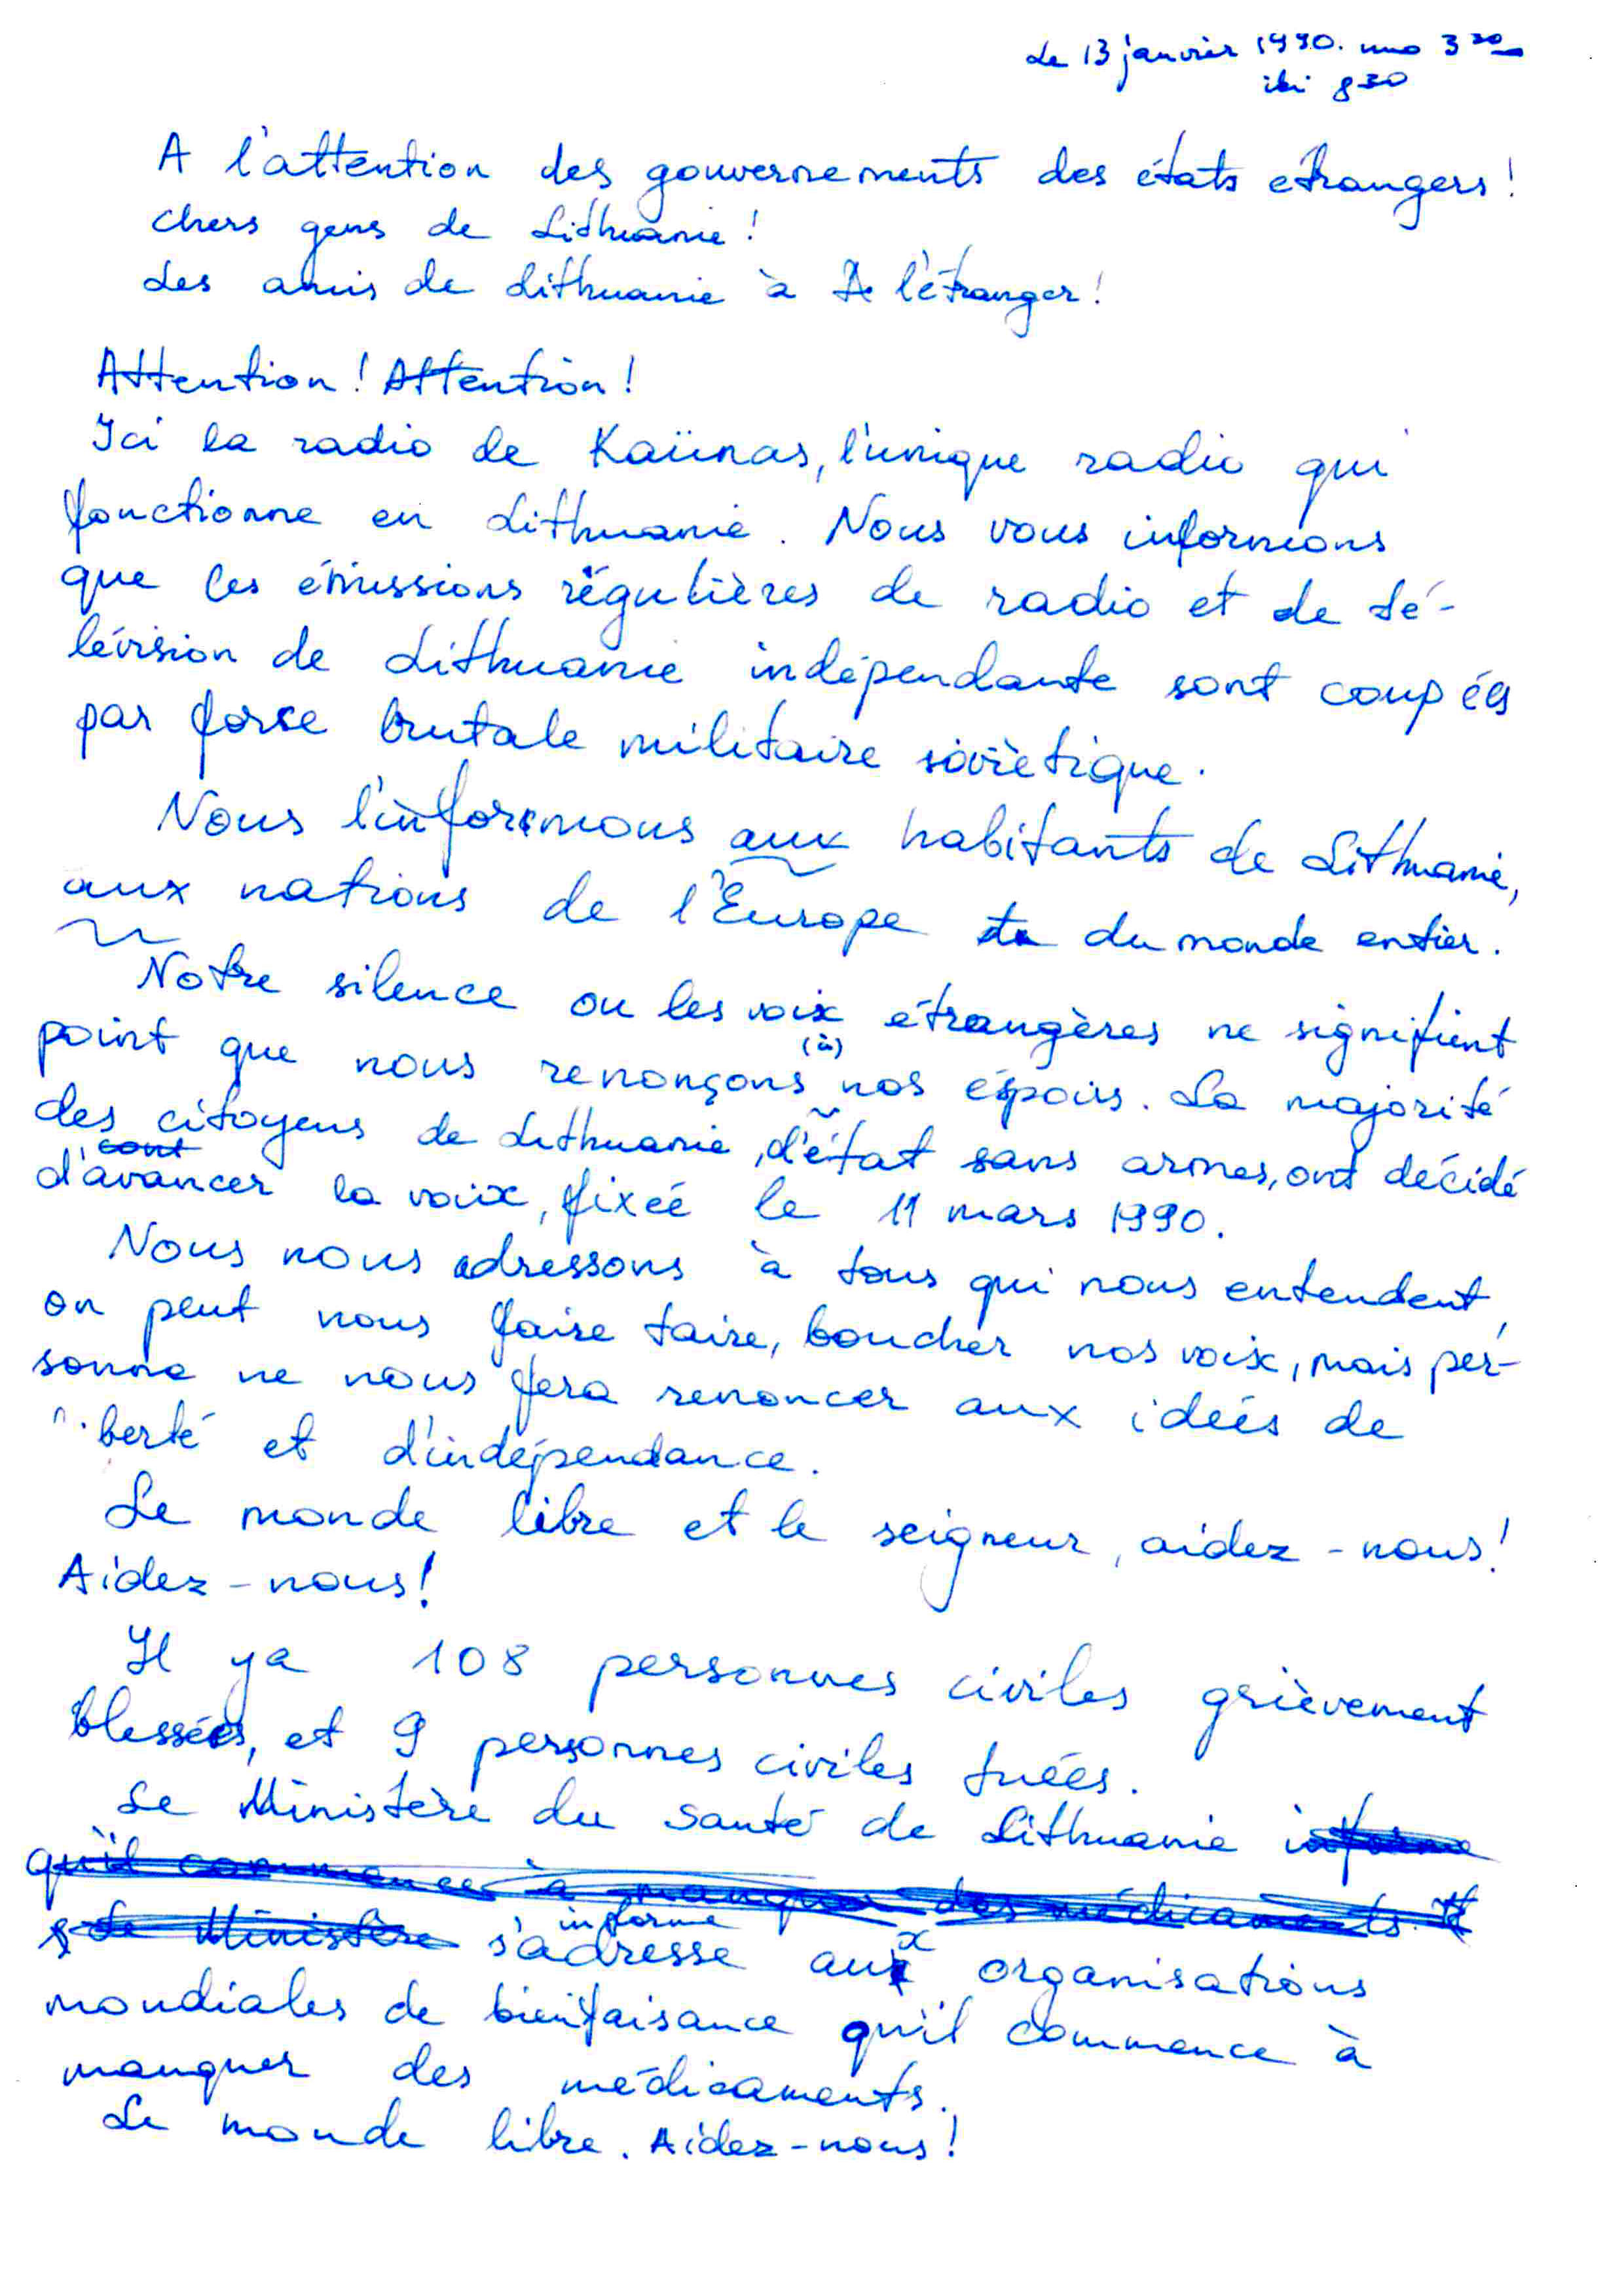 Le 13 janvier 1990. nuo 3 30
iki 8 30
A l'attention des gouvernements des états étrangers!
Chers gens de Lithuanie!
Les amis de Lithuanie à l'étranger!
Attention! Attention!
Ici la radio de Kaünas, l'unique radio qui
fonctionne en Lithuanie. Nous vous informons
que les émissions régulières de radio et de té-
lévision de Lithuanie indépendante sont coupées
par forse brutale militaire soviètique.
Nous l'informons aux habitants de Lithuanie,
aux nations de l'Europe du monde entier.
Notre silence ou les voix étrangères ne signifient
point que nous renonçons (à) nos éspoirs. La majorité
des citoyens de Lithuanie, d'état sans armes, ont décidé
d'avancer la voix, fixeé le 11 mars 1990.
Nous nous adressons à tous qui nous entendent,
on peut nous faire taire, boucher nos voix, mais per-
sonne ne nous fera renoncer aux ideés de
liberté et d'indépendance.
Le monde libre et le seigneur, aidez-nous!
Aidez-nous!
Il ya 108 personnes civiles grièvement
blessées, et 9 personnes civiles tueés.
Le Ministère du santé de Lithuanie informe
qu'il commence à manquer des médicaments.
Le Ministère s'adresse informe aux organisations
mondiales de bienfaisance qu'il commence à
manquer des médicaments.
Le monde libre. Aidez-nous!